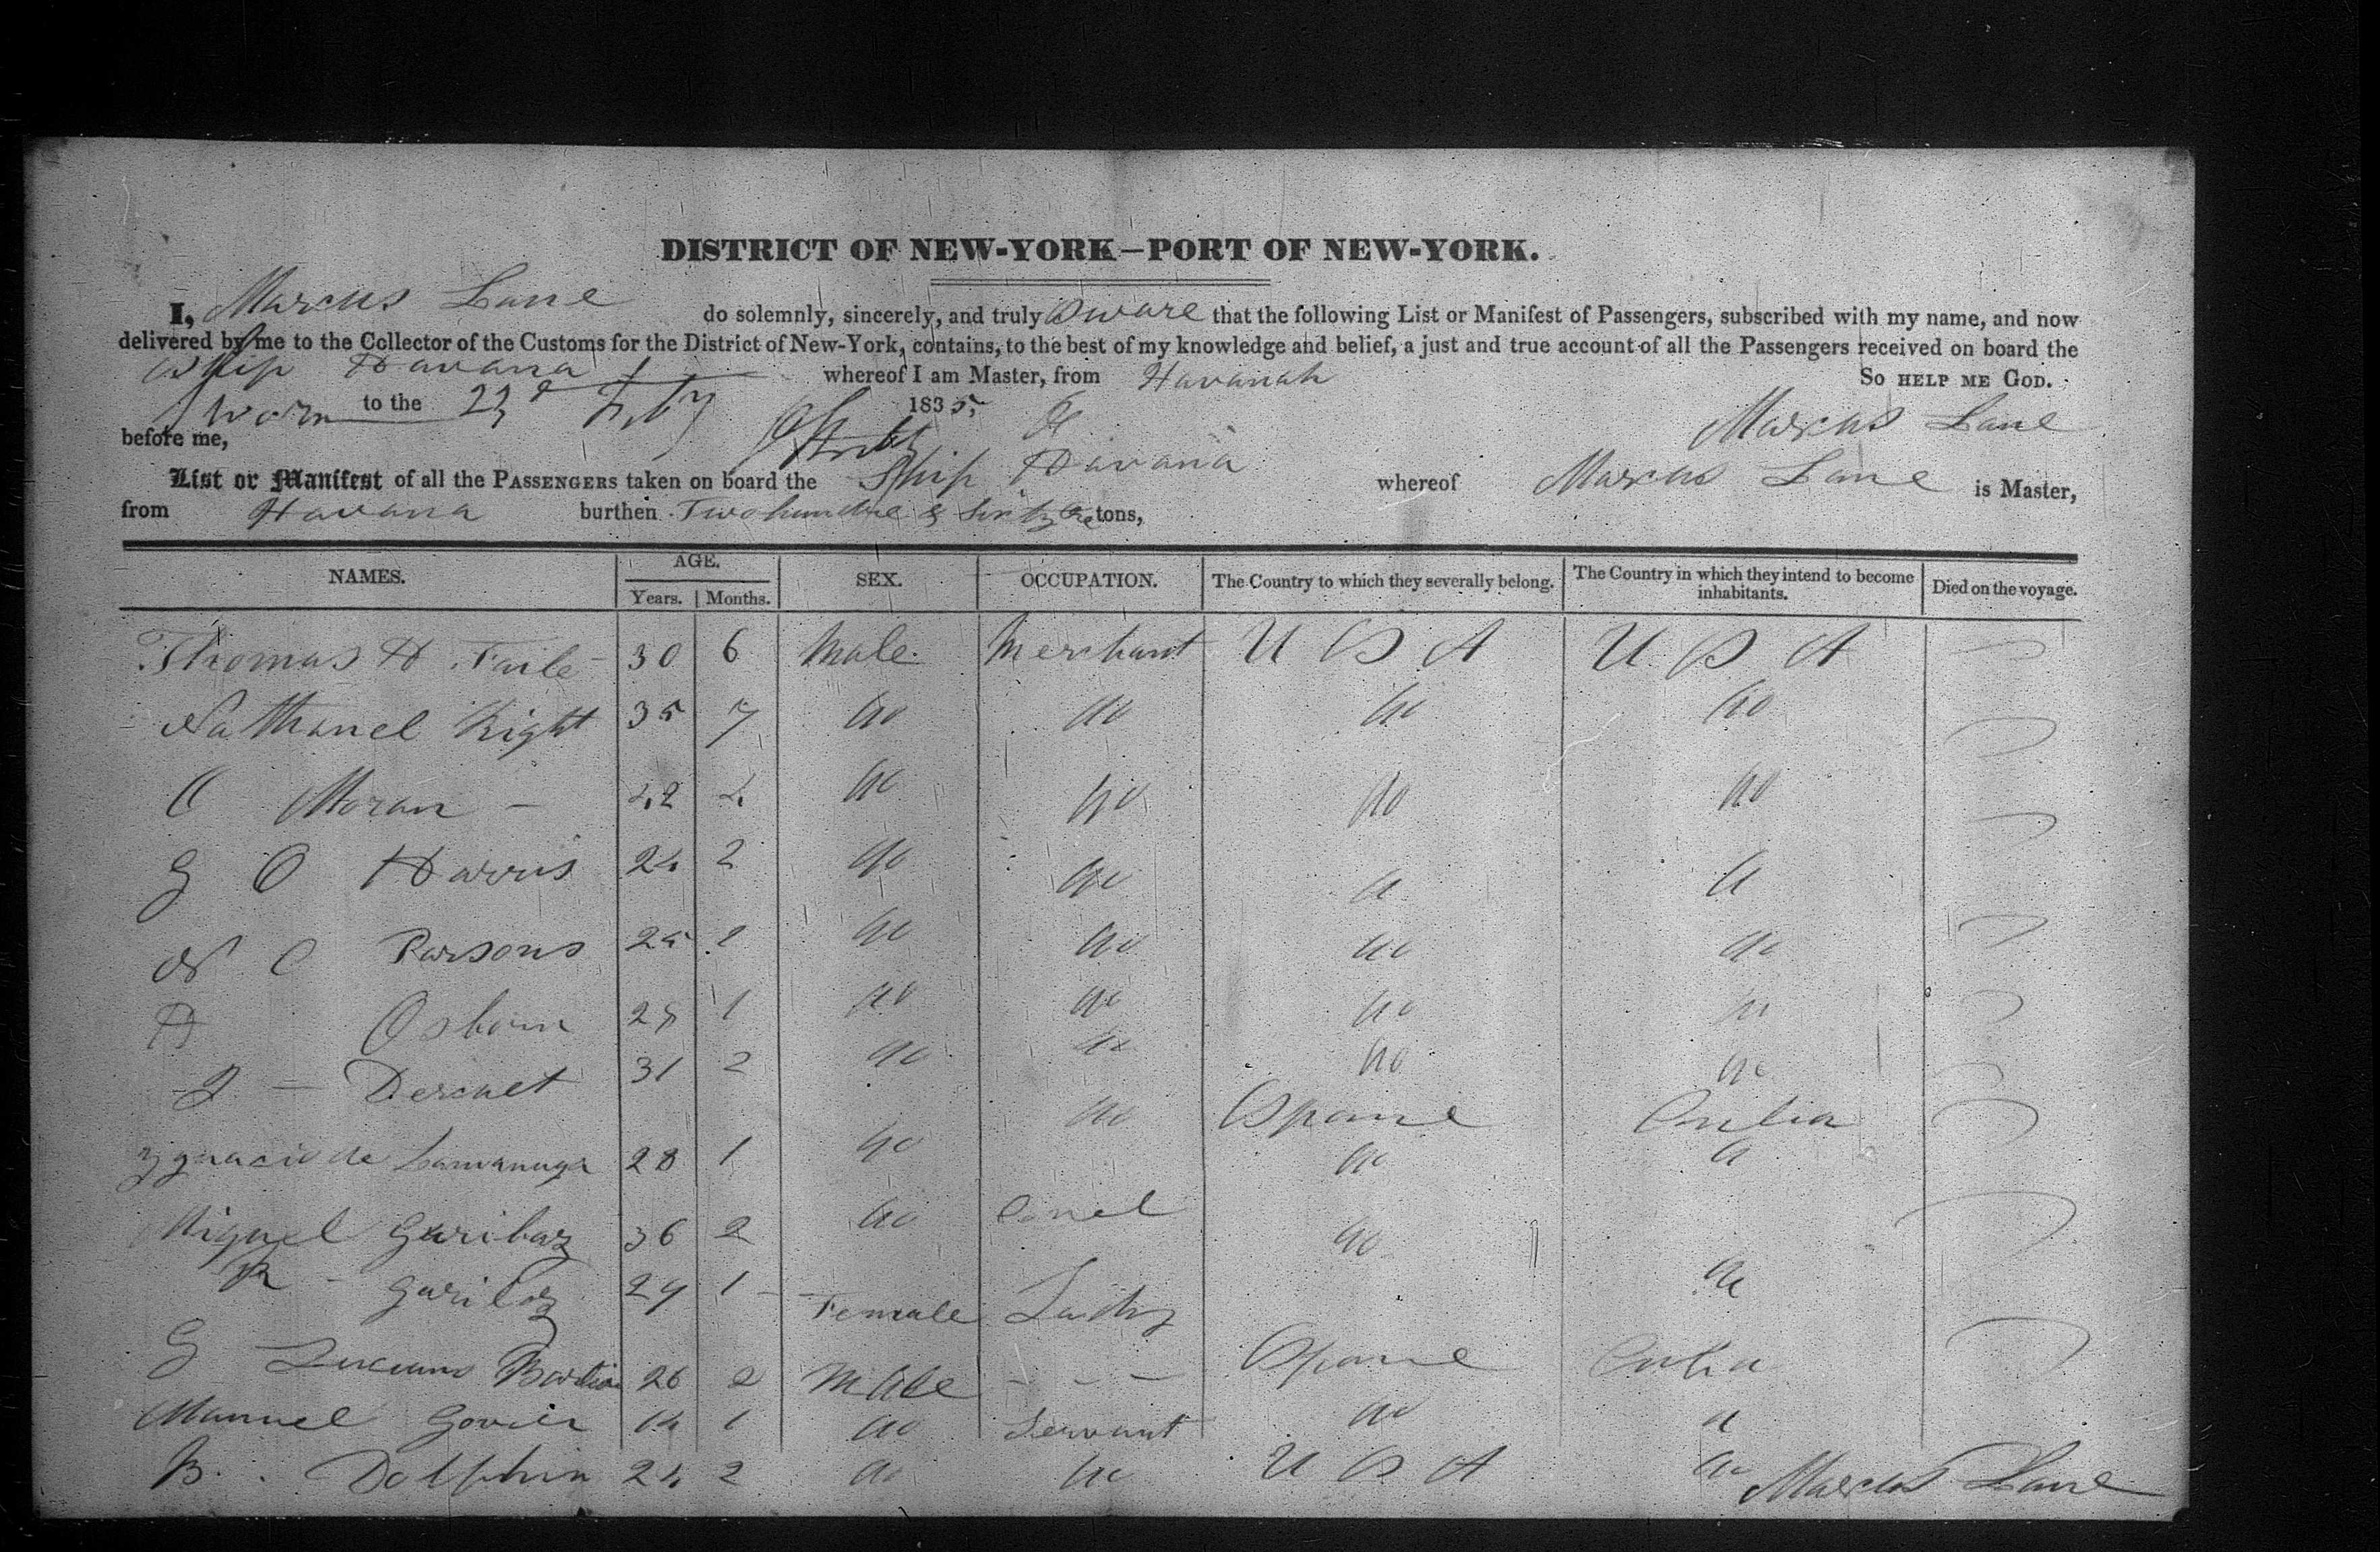 DISTRICT OF NEW-YORK—PORT OF NEW-YORK.
I, Marcus Lane do solemnly, sincerely, and truly Sware that the following List or Manifest of Passengers, subscribed with my name, and now
delivered by me to the Collector of the Customs for the District of New-York, contains, to the best of my knowledge and belief, a just and true account of all the Passengers received on board the
Ship Havana whereof I am Master, from Havanah So HELP ME GOD.
Sworn to the 23d Feby 1835 Marcus Lane
before me,
List or Manifest of all the PASSENGERS taken on board the Ship Havana whereof Marcus Lane is Master,
from Havana burthen Two hundre & Sixty tons,
NAMES. AGE. Years. Months. SEX. OCCUPATION. The Country to which they severally belong. The Country in which they intend to become inhabitants. Died on the voyage.
Thomas H Faile 30 6 Male Merchant U S A U S A
Nathanel Right 35 7 do do do do
C Moran 42 4 do do do do
G O Harris 24 2 do do do do
N C Parsons 25 2 do do do do
H Osborn 28 1 do do do do
31 2 do do do do
Ygnacio de 28 1 do do Spane Cuba
Miguel Garibay 36 2 do do
Garibay 29 1 Female Lady do do
G Luciano 26 2 Male - - - Spane Cuba
Manuel 14 1 do Servant do
B. Dolphin 24 2 do do U S A do
Marcus Lane